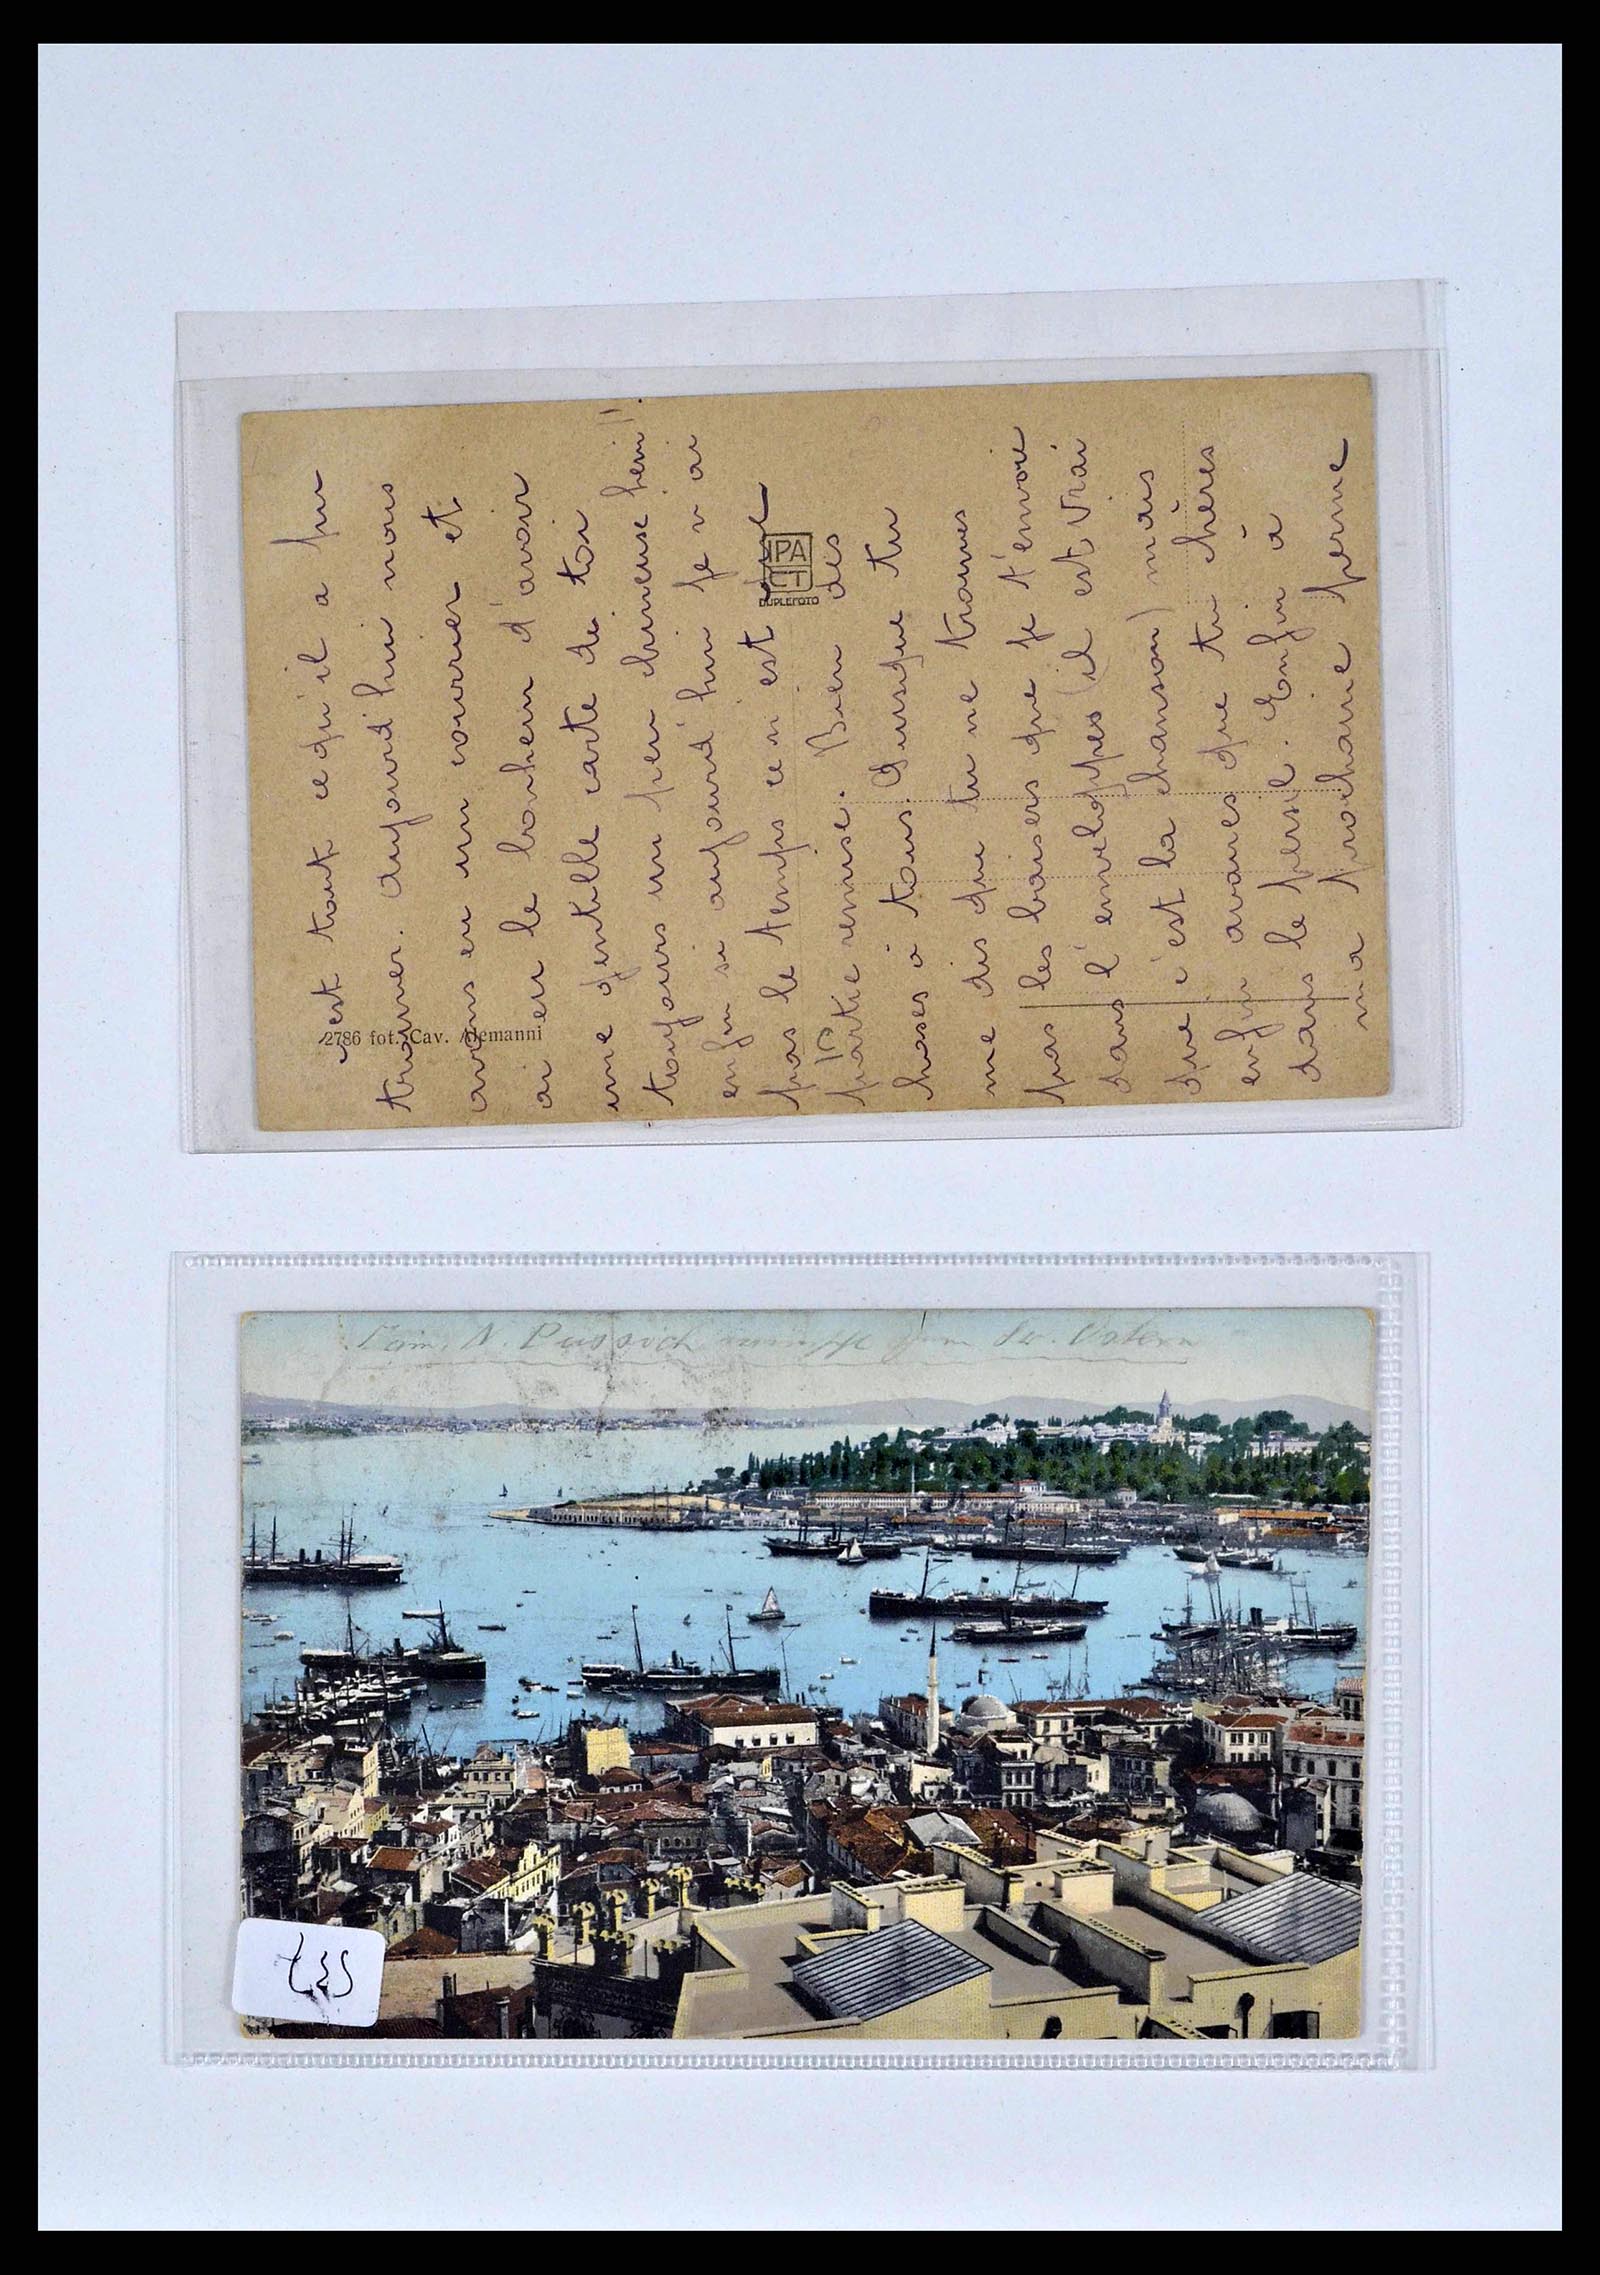 c'est tout ce qu'il a pu
trouver. aujourd'hui nous
avons eu un courrier et
ai eu le bonheur d'avoir
une gentille carte de toi
toujours un peu chineuse hein!!
enfin si aujourd'hui je n'ai
pas le temps ce n'est
partie remise. Bien des
choses à tous. Puisque tu
me dis que tu ne trouves
pas les baisers que je t'envoie
dans l'enveloppes (il est vrai
que c'est la chanson) mais
enfin avoues que tu
dans le persil. Enfin à
ma prochaine perme
2786 fot. Cav. Alemanni
IPA
CT
DUPLEFOTO
N. Pussich